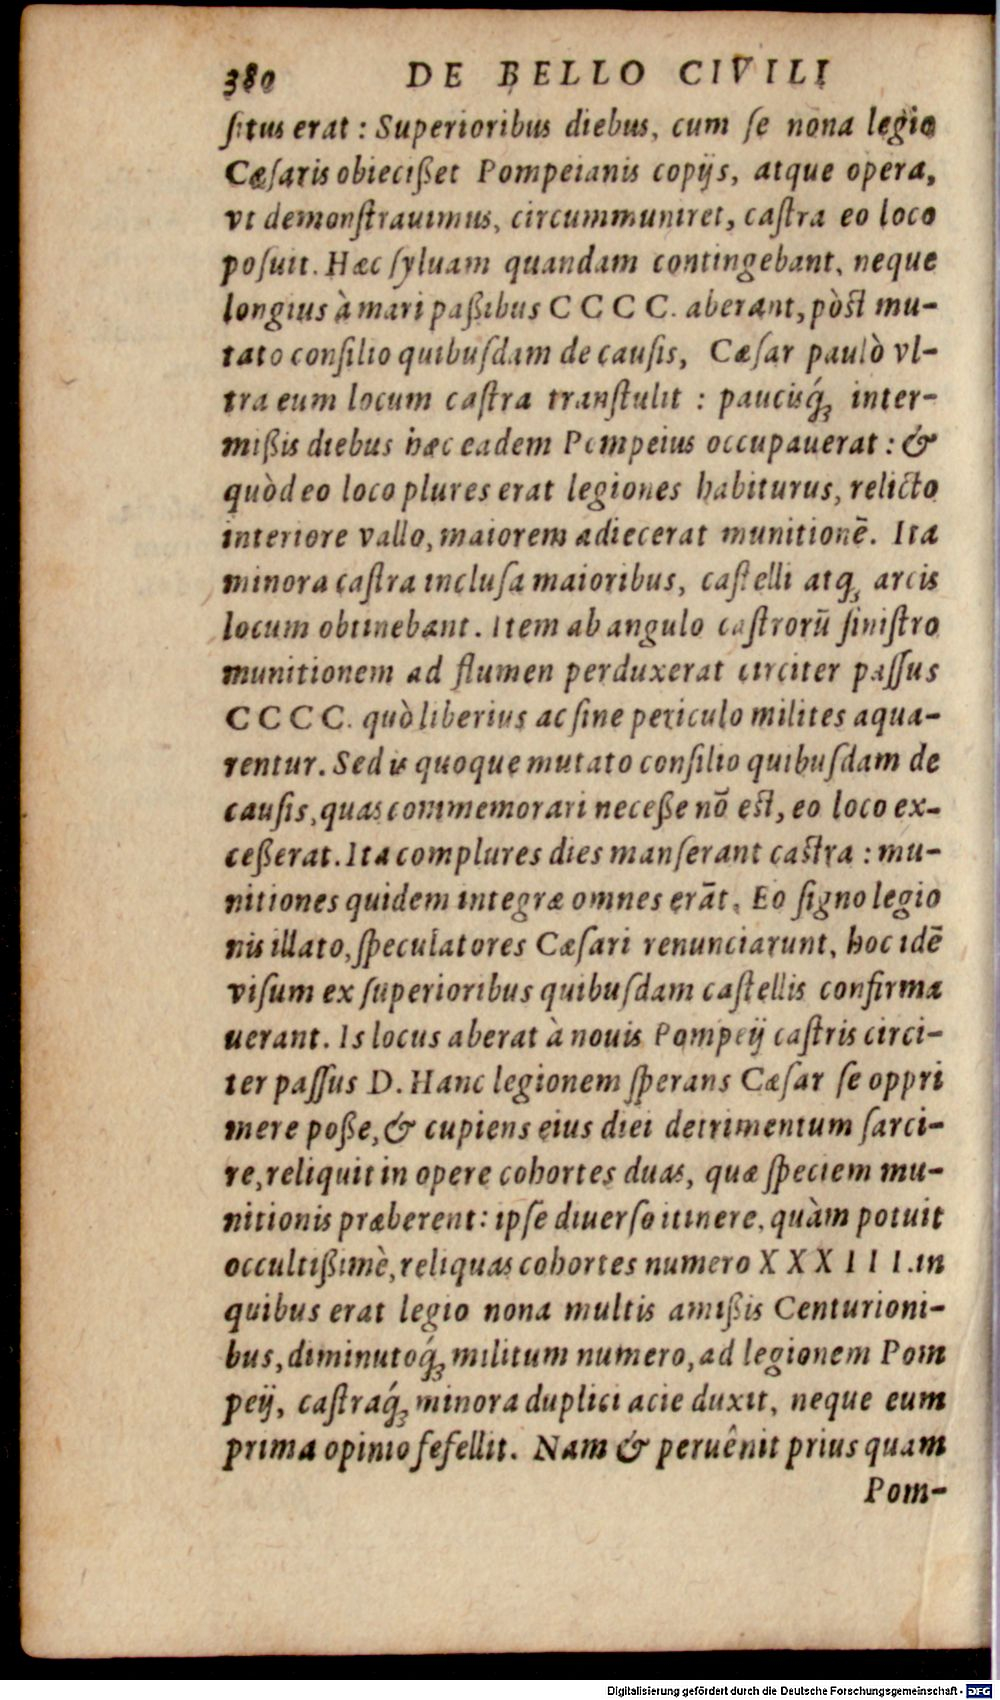 380 DE BELLO CIVILI
ſitus erat : Superioribus diebus, cum ſe nona legio
Cæſaris obiecißet Pompeianis copijs, atque opera,
vt demonſtrauimus, circummuniret, caſtra eo loco
poſuit. Hæc ſyluam quandam contingebant, neque
longius à mari paßibus CCCC. aberant, pòſt mu-
tato conſilio quibuſdam de cauſis, Cæſar paulò vl-
tra eum locum caſtra tranſtulit : paucisq́ꝫ inter-
mißis diebus hæc eadem Pompeius occupauerat : &
quòd eo loco plures erat legiones habiturus, relicto
interiore vallo, maiorem adiecerat munitionē. Ita
minora caſtra incluſa maioribus, caſtelli atqꝫ arcis
locum obtinebant. Item ab angulo caſtrorū ſiniſtro
munitionem ad flumen perduxerat circiter paſſus
CCCC. quò liberius ac ſine periculo milites aqua-
rentur. Sed is quoque mutato conſilio quibuſdam de
cauſis, quas commemorari neceße nō eſt, eo loco ex-
ceßerat. Ita complures dies manſerant caſtra : mu-
nitiones quidem integræ omnes erāt. Eo ſigno legio
nis illato, ſpeculatores Cæſari renunciarunt, hoc idē
viſum ex ſuperioribus quibuſdam caſtellis confirma
uerant. Is locus aberat à nouis Pompeij caſtris circi-
ter paſſus D. Hanc legionem ſperans Cæſar ſe oppri
mere poße, & cupiens eius diei detrimentum ſarci-
re, reliquit in opere cohortes duas, quæ ſpeciem mu-
nitionis præberent: ipſe diuerſo itinere, quàm potuit
occultißimè, reliquas cohortes numero XXXIII. in
quibus erat legio nona multis amißis Centurioni-
bus, diminutoq́ꝫ militum numero, ad legionem Pom
peij, caſtraq́ꝫ minora duplici acie duxit, neque eum
prima opinio fefellit. Nam & peruênit prius quam
Pom-
Digitalisierung gefördert durch die Deutsche Forschungsgemeinschaft - DFG